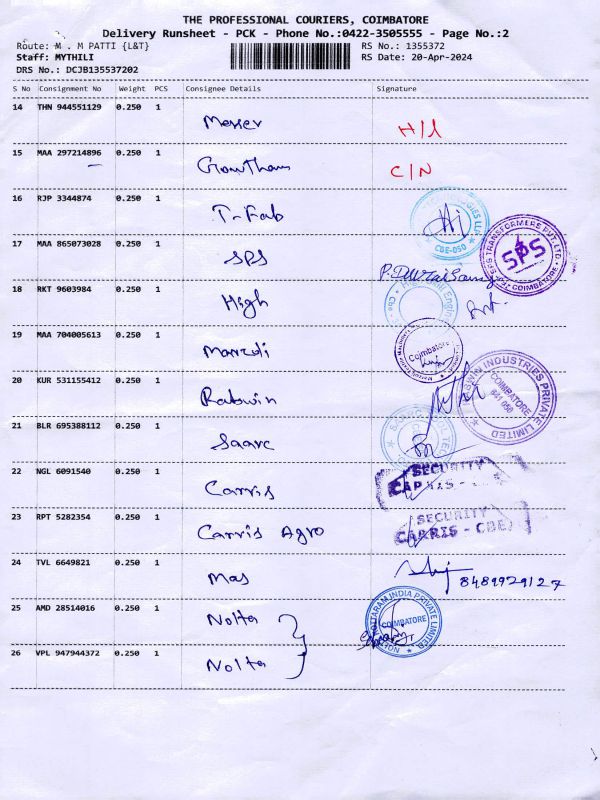 THE PROFESSIONAL COURIERS, COIMBATORE
Delivery Runsheet - PCK - Phone No.:0422-3505555 - Page No.:2
Route: M . M PATTI {L&T} RS No.: 1355372
Staff: MYTHILI RS Date: 20-Apr-2024
DRS No.: DCJB135537202
S No Consignment No Weight PCS Consignee Details Signature
14 THN 944551129 0.250 1 Messer H/l
15 MAA 297214896 0.250 1 Gowtham C/N
16 RJP 3344874 0.250 1 T-Fab
CBE-050
17 MAA 865073028 0.250 1 SPS
SPS TRANSFORMERS PVT. LTD. SPS COIMBATORE
18 RKT 9603984 0.250 1 High
19 MAA 704005613 0.250 1 Coimbatore
20 KUR 531155412 0.250 1 Rabwin
INDUSTRIES PRIVATE LIMITED COIMBATORE 641 050
21 BLR 695388112 0.250 1 Saarc
22 NGL 6091540 0.250 1 Carris SECURITY CAPRIS -
23 RPT 5282354 0.250 1 Carris Agro SECURITY CAPRIS - CBE
24 TVL 6649821 0.250 1 Mas 8489929127
25 AMD 28514016 0.250 1 Nolta
INDIA PRIVATE LIMITED COIMBATORE
26 VPL 947944372 0.250 1 Nolta